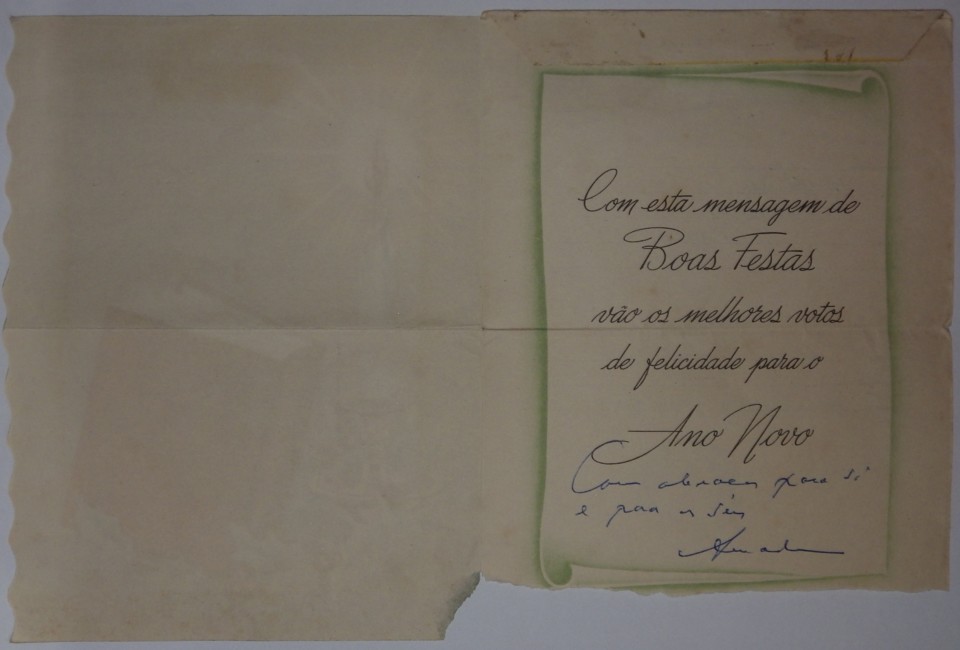 Com esta mensagem de
Boas Festas
vão os melhores votos
de felicidade para o
Ano Novo
Com abraços para si
e para os seus